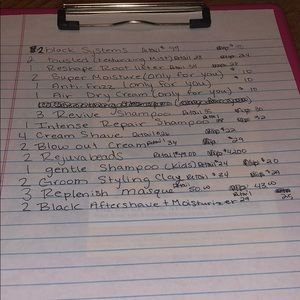 2 black Systems Retail $ 99
2 Tousled (Texturizing Mist) Retail 28 24
1 Reshape Root lifter Retail 24
2 Super Moisture (only for you) $ 10
1 Anti-Frizz (only for you) $ 10
1 Dry Cream (only for you) $ 10
3 Revive Shampoo
1 Intense Repair Shampoo 32
4 Cream Shave Retail $26 $22
2 Blow out Cream Retail $34 $29
2 Rejuvabeads Retail $49.00 $42.00
1 gentle Shampoo (Kids) Retail $24 $20
2 Groom Styling Clay Retail $34 $29
3 Replenish masque Retail 50.00 43.00
2 Black Aftershave + Moisturizer Retail 29 25